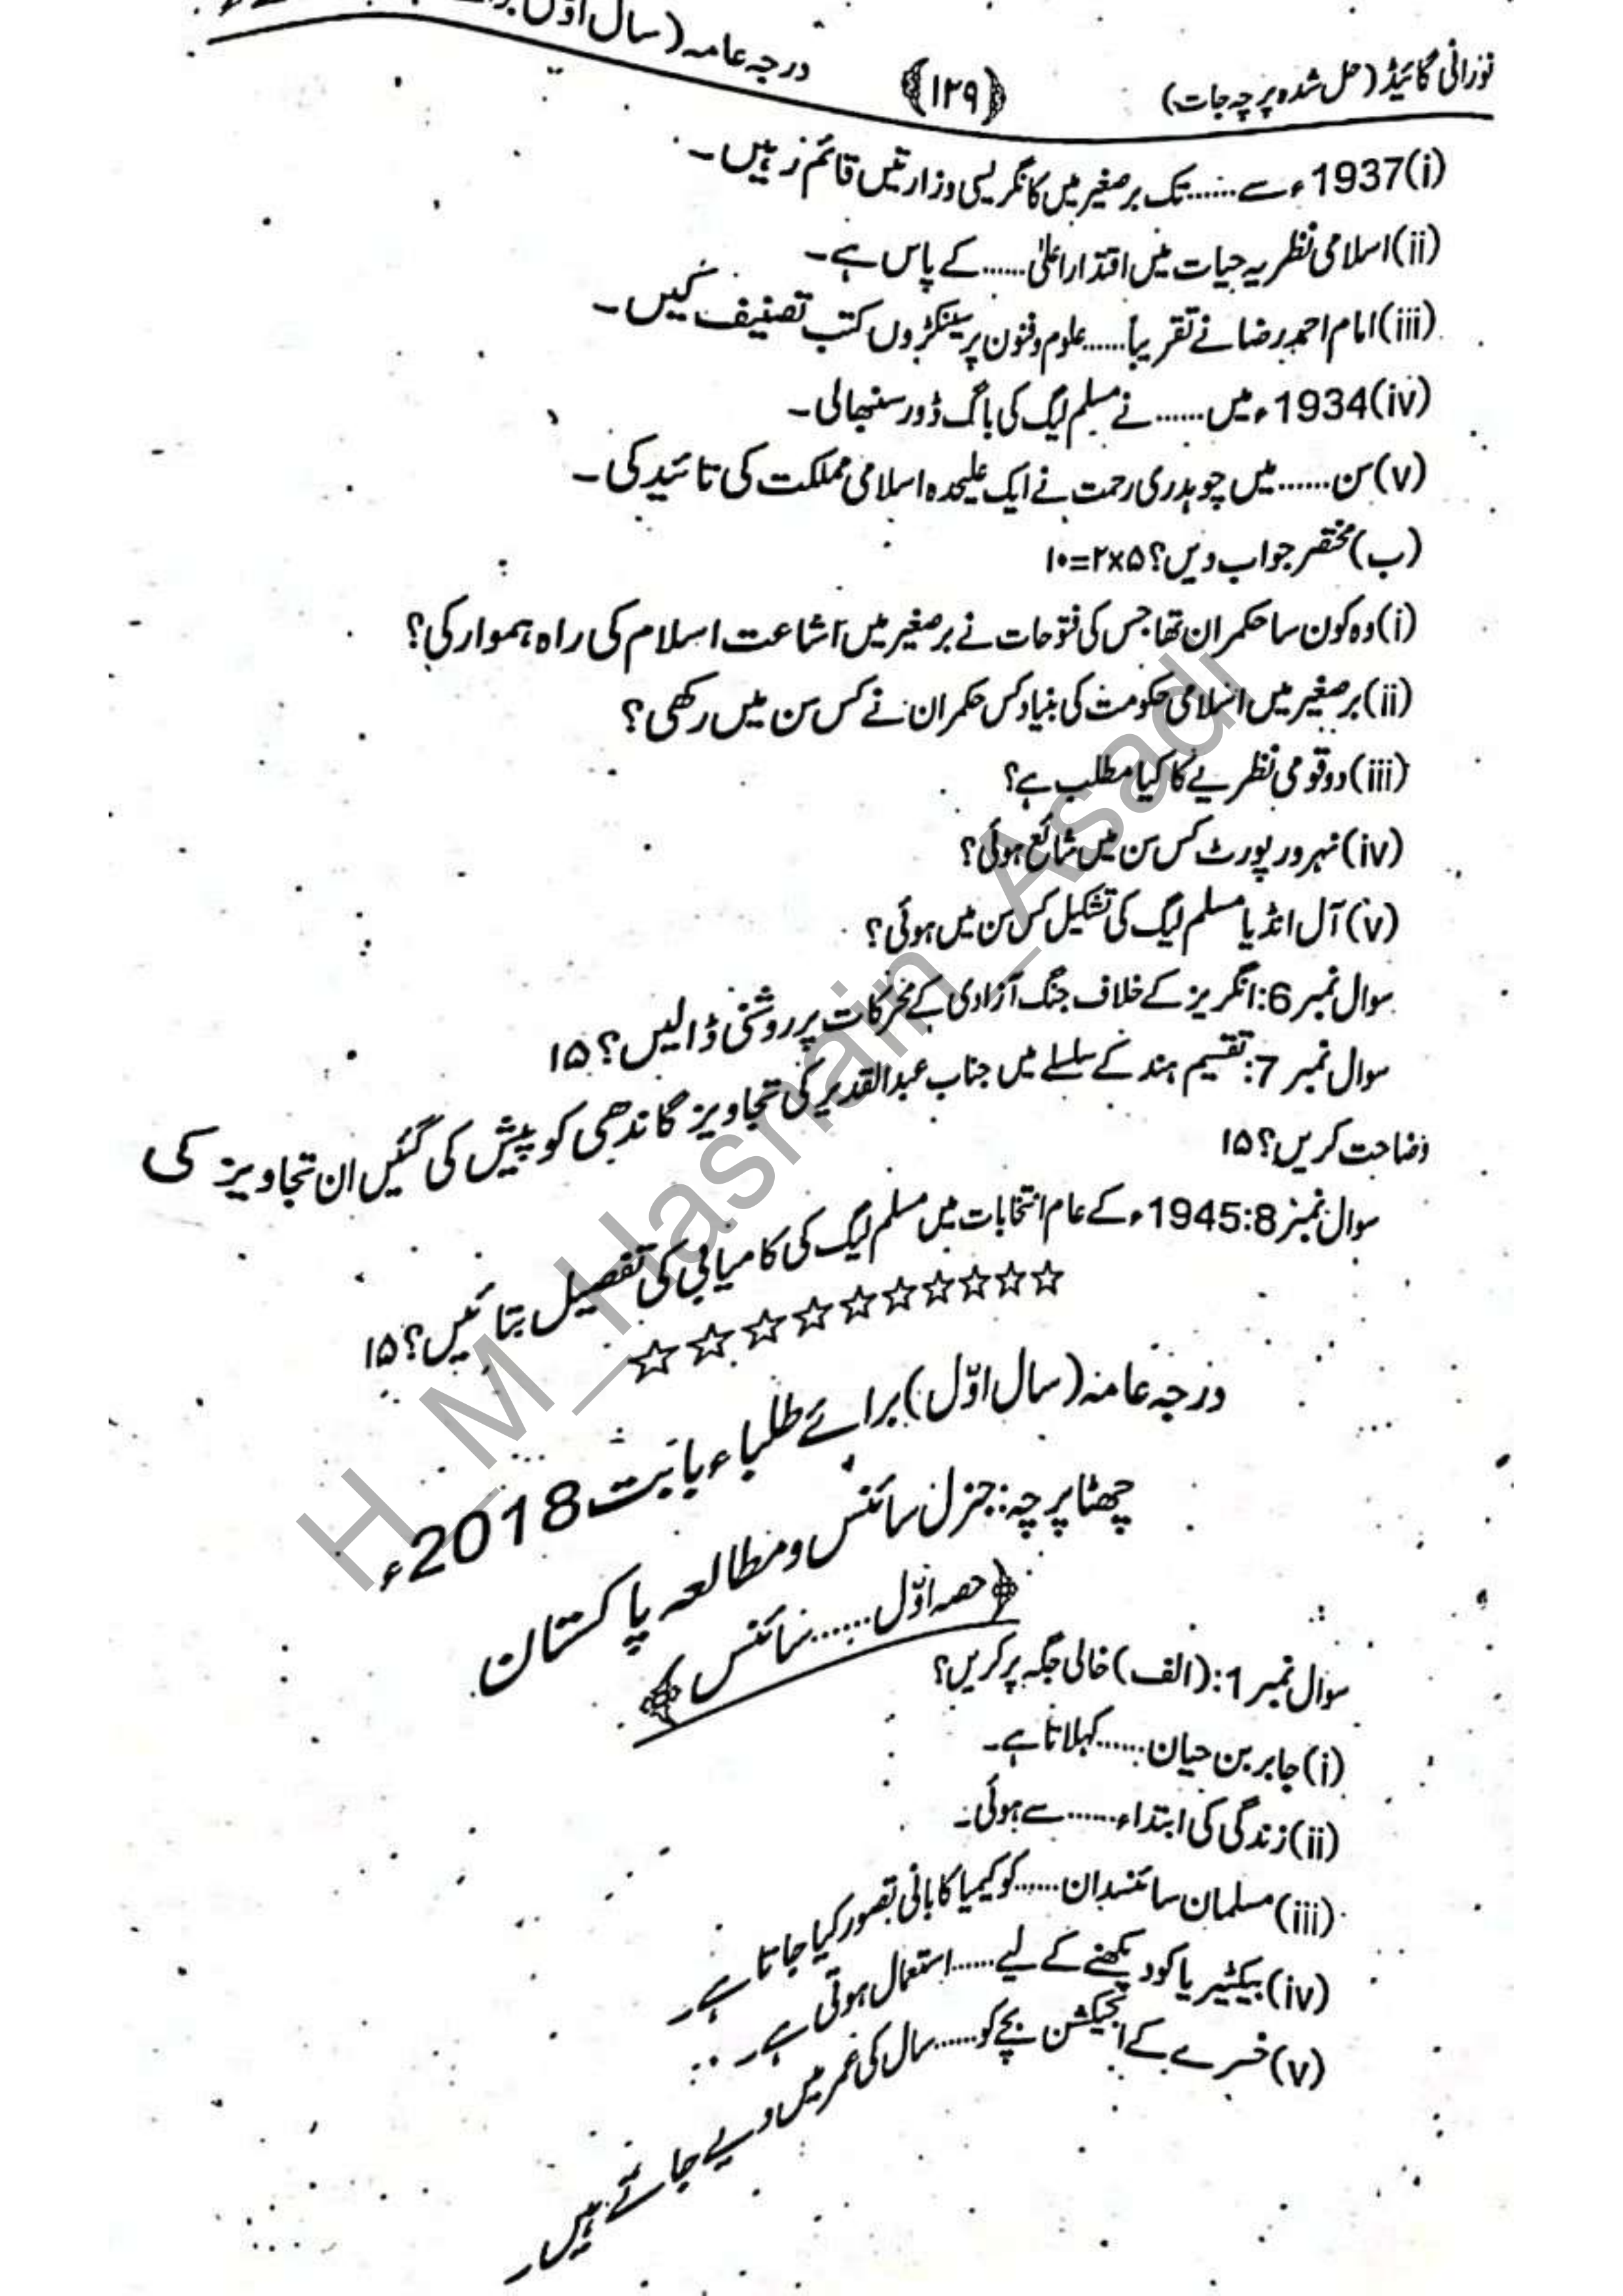 نورانی گائیڈ (حل شدہ پرچہ جات) ﴿۱۲۹﴾ درجہ عامہ (سال اوّل)
(i) 1937ء سے......تک برصغیر میں کانگریسی وزارتیں قائم رہیں۔
(ii) اسلامی نظریہ حیات میں اقتدار اعلیٰ......کے پاس ہے۔
(iii) امام احمد رضا نے تقریباً......علوم و فنون پر سینکڑوں کتب تصنیف کیں۔
(iv) 1934ء میں......نے مسلم لیگ کی باگ ڈور سنبھالی۔
(v) سن......میں چوہدری رحمت نے ایک علیحدہ اسلامی مملکت کی تائید کی۔
(ب) مختصر جواب دیں؟ ۵×۲=۱۰
(i) وہ کون سا حکمران تھا جس کی فتوحات نے برصغیر میں اشاعت اسلام کی راہ ہموار کی؟
(ii) برصغیر میں اسلامی حکومت کی بنیاد کس حکمران نے کس سن میں رکھی؟
(iii) دو قومی نظریے کا کیا مطلب ہے؟
(iv) نہرو رپورٹ کس سن میں شائع ہوئی؟
(v) آل انڈیا مسلم لیگ کی تشکیل کس سن میں ہوئی؟
سوال نمبر 6: انگریز کے خلاف جنگ آزادی کے محرکات پر روشنی ڈالیں؟ ۱۵
سوال نمبر 7: تقسیم ہند کے سلسلے میں جناب عبدالقدیر کی تجاویز گاندھی کو پیش کی گئیں ان تجاویز کی
وضاحت کریں؟ ۱۵
سوال نمبر 8: 1945ء کے عام انتخابات میں مسلم لیگ کی کامیابی کی تفصیل بتائیں؟ ۱۵
☆☆☆☆☆☆☆☆☆☆
درجہ عامہ (سال اوّل) برائے طلباء بابت 2018ء
چھٹا پرچہ: جنرل سائنس و مطالعہ پاکستان
﴿حصہ اوّل......سائنس﴾
سوال نمبر 1: (الف) خالی جگہ پر کریں؟
(i) جابر بن حیان......کہلاتا ہے۔
(ii) زندگی کی ابتداء......سے ہوئی۔
(iii) مسلمان سائنسدان......کو کیمیا کا بانی تصور کیا جاتا ہے۔
(iv) بیکٹیریا کو دیکھنے کے لیے......استعمال ہوتی ہے۔
(v) خسرے کے انجیکشن بچے کو......سال کی عمر میں دیے جاتے ہیں۔
H_M_Hasnain_Asadi